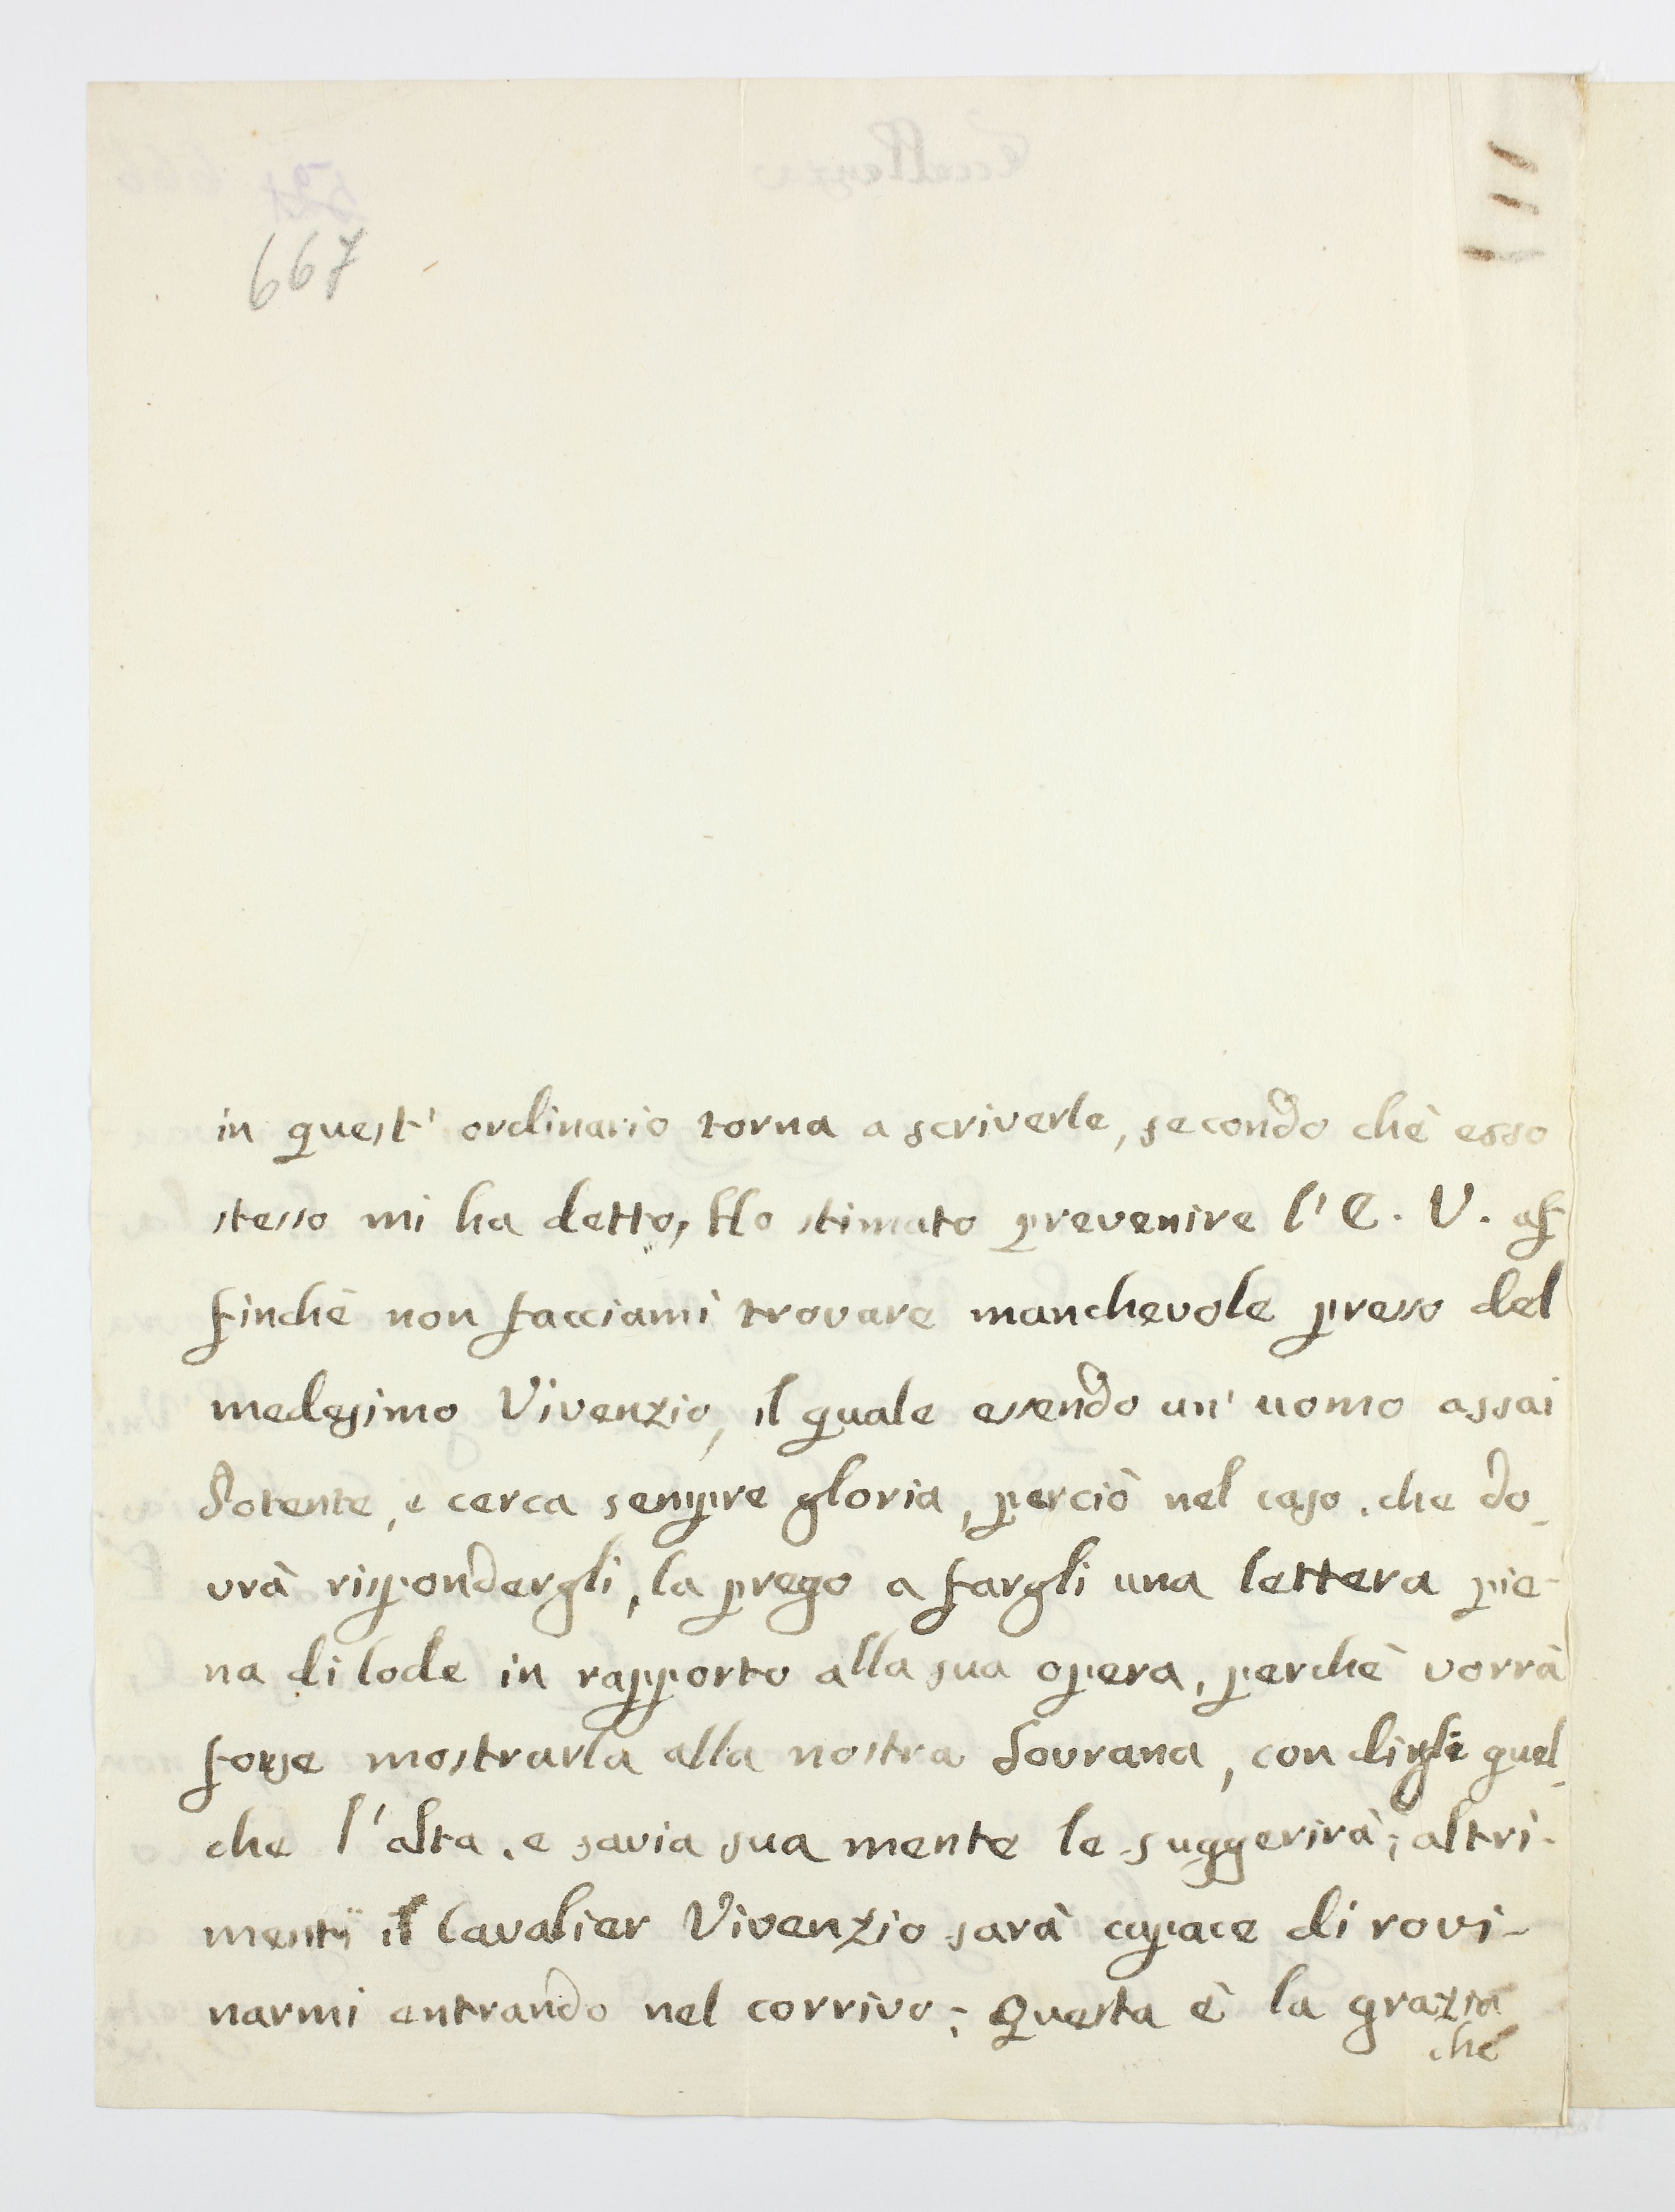 667
in quest' ordinario torna a scriverle, secondo chè esso
stesso mi ha detto, Ho stimato prevenire l' E. V. af
finchè non facciami trovare manchevole presso del
medesimo Vivenzio, il quale essendo un' uomo assai
Potente, e cerca sempre gloria, perciò nel caso, che do_
vrà rispondergli, la prego a fargli una lettera pie-
na di lode in rapporto alla sua opera, perchè vorrà
forse mostrarla alla nostra Sovrana, con dirgli quel_
che l' alta, e savia sua mente le suggerirà; altri-
menti il Cavalier Vivenzio sarà capace di rovi-
narmi entrando nel corrivo; Questa è la grazia
che